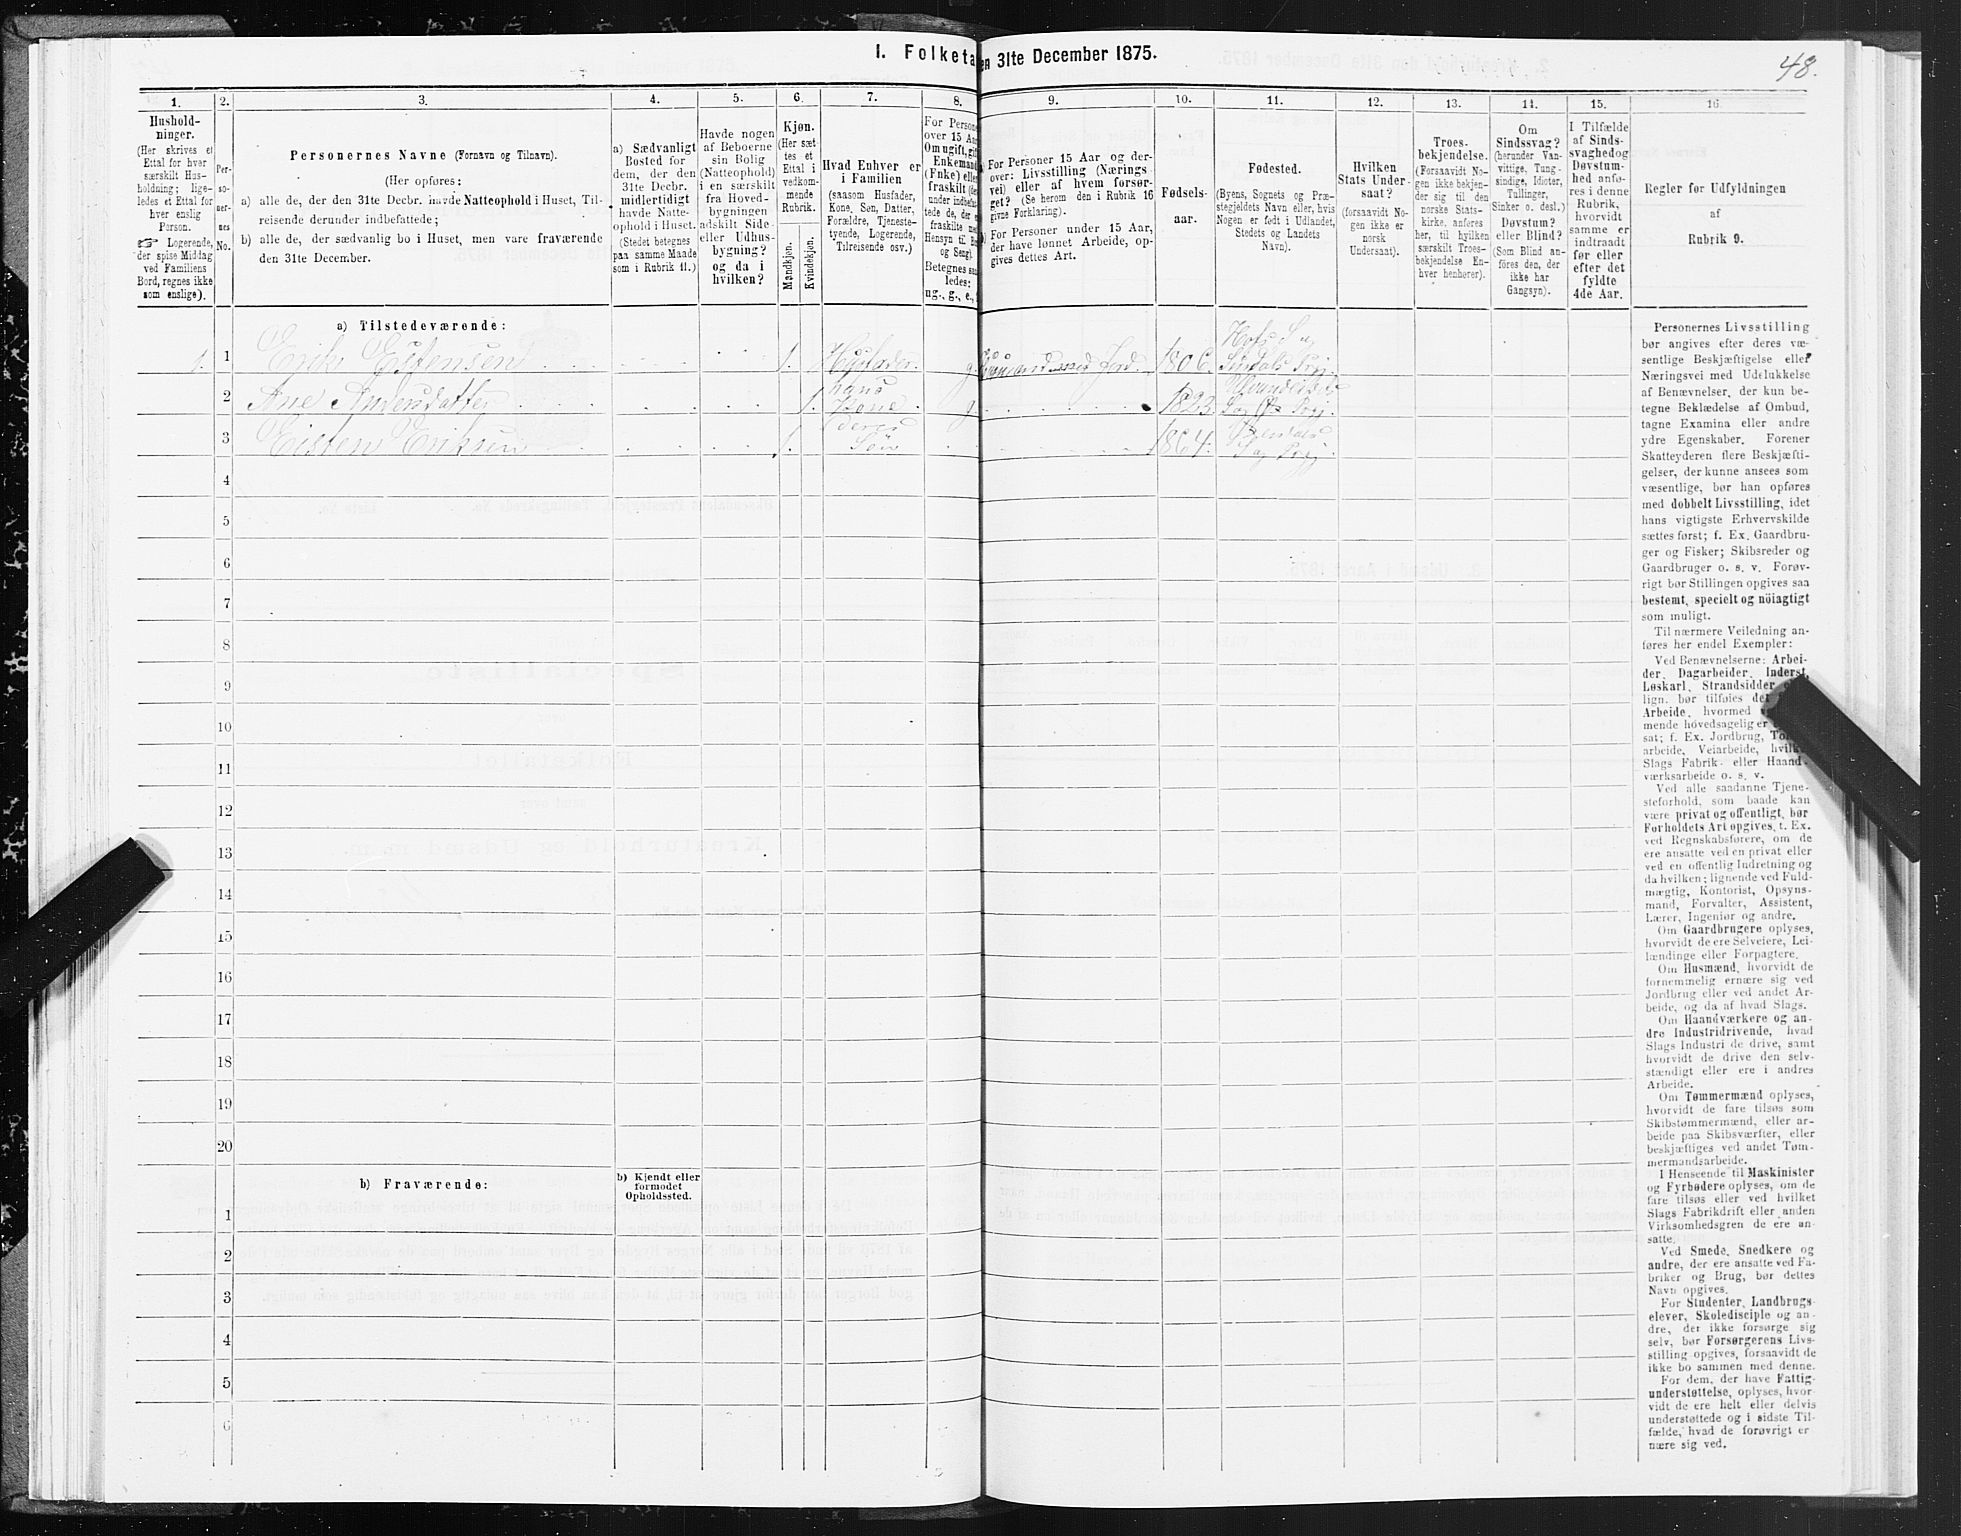 48.
I. Folketa en 31te December 1875.
1. 2. 3. 4. 5. 6. 7. 8. 9. 10. 11. 12. 13. 14. 15. 16
Hushold-
ninger.
(Her skrives et
Ettal for hver
særskilt Hus-
holdning; lige-
ledes et Ettal for
hver enslig
Person.
☞ Logerende,
der spise Middag
ved Familiens
Bord, regnes ikke
som enslige).
Per-
so-
ner-
nes
No.
Personernes Navne (Fornavn og Tilnavn).
(Her opføres:
a) alle de, der den 31te Decbr. havde Natteophold i Huset, Til-
reisende derunder indbefattede;
b) alle de, der sædvanlig bo i Huset, men vare fraværende
den 31te December.
a) Sædvanligt
Bosted for
dem, der den
31te Decbr.
midlertidigt
havde Natte-
ophold i Huset.
(Stedet betegnes
paa samme Maade
som i Rubrik 11.)
Havde nogen
af Beboerne
sin Bolig
(Natteophold)
i en særskilt
fra Hoved-
bygningen
adskilt Side-
eller Udhus-
bygning?
og da i
hvilken?
Kjøn.
(Her sæt-
tes et
Ettal i
vedkom-
mende
Rubrik.
Mandkjøn.
Kvindekjøn.
Hvad Enhver er
i Familien
(saasom Husfader,
Kone, Søn, Datter,
Forældre, Tjeneste-
tyende, Logerende,
Tilreisende osv.)
For Person
over 15 Aa
Om ugift, gif
Enkemand
(Enke) elle
fraskilt (de
under indbefa
tede de, der e
fraskilte me
Hensyn til B
og Seng).
Betegnes saa
ledes:
ug., g., e.,
For Personer 15 Aar og der-
over: Livsstilling (Nærings
vei) eller af hvem forsør-
get? (Se herom den i Rubrik 16
givne Forklaring).
For Personer under 15 Aar,
der have lønnet Arbeide, op-
gives dettes Art.
Fødsels-
aar.
Fødested.
(Byens, Sognets og Præ-
stegjeldets Navn eller, hvis
Nogen er født i Udlandet,
Stedets og Landets
Navn).
Hvilken
Stats Under-
saat?
(forsaavidt No-
gen ikke er
norsk
Undersaat).
Troes-
bekjendelse.
(Forsaavidt No-
gen ikke bekjen-
der sig til den
norske Stats-
kirke, anføres
her, til hvilken
særskilt Troes-
bekjendelse En-
hver henhører).
Om
Sindssvag?
(herunder Van-
vittige, Tung-
sindige, Idioter,
Tullinger,
Sinker o. desl.)
Døvstum?
eller Blind?
(Som Blind an-
føres den, der
ikke har
Gangsyn).
I Tilfælde
af Sinds-
svaghed og
Døvstum-
hed anfø-
res i denne
Rubrik,
hvorvidt
samme er
indtraadt
før eller
efter det
fyldte
4de Aar.
Regler før Udfyldningen
af
Rubrik 9.
a) Tilstedeværende:
1. 1 Erik Estensen 1. Husfader. g. Huusmand med Jord. 1806.
2 Ane Andersdatter 1. hans Kone g. 1823.
3 Eisten Eriksen 1. deres Søn 1864.
4
5
6
7
8
9
10
11
12
13
14
15
16
17
18
19
20
b) Fraværende:
b) Kjendt eller
formodet
Opholdssted.
1
2
3
4
5
6
Personernes Livsstilling
bør angives efter deres væ-
sentlige Beskjæftigelse eller
Næringsvei med Udelukkelse
af Benævnelser, der kun be-
tegne Beklædelse af Ombud,
tagne Examina eller andre
ydre Egenskaber. Forener
Skatteyderen flere Beskjæfti-
gelser, der kunne ansees som
væsentlige, bør han opføres
med dobbelt Livsstilling, idet
hans vigtigste Erhvervskilde
sættes først; f. Ex. Gaardbru-
ger og Fisker; Skibsreder og
Gaardbruger o. s. v. Forøv-
rigt bør Stillingen opgives saa
bestemt, specielt og nöiagtigt
som muligt.
Til nærmere Veiledning an-
føres her endel Exempler:
Ved Benævnelserne: Arbei-
der, Dagarbeider, Inderst,
Løskarl, Strandsidder
lign. bør tilføies de
Arbeide, hvormed
mende hovedsagelig er
sat; f. Ex. Jordbrug,
arbeide, Veiarbeide,
Slags Fabrik- eller Haand-
værksarbeide o. s. v.
Ved alle saadanne Tjene-
steforhold, som baade kan
være privat og offentligt, bør
Forholdets Art opgives, t. Ex.
ved Regnskabsførere, om de
ere ansatte ved en privat eller
ved en offentlig Indretning og
da hvilken; lignende ved Fuld-
mægtig, Kontorist, Opsyns-
mand, Forvalter, Assistent,
Lærer, Ingeniør og andre.
Om Gaardbrugere oplyses,
hvorvidt de ere Selveiere, Lei-
lændinge eller Forpagtere.
Om Husmænd, hvorvidt de
fornemmelig ernære sig ved
Jordbrug eller ved andet Ar-
beide, og da af hvad Slags.
Om Haandværkere og an-
dre Industridrivende, hvad
Slags Industri de drive, samt
hvorvidt de drive den selv-
stændigt eller ere i andres
Arbeide.
Om Tømmermænd oplyses,
hvorvidt de fare tilsøs som
Skibstømmermænd, eller ar-
beide paa Skibsværfter, eller
beskjæftiges ved andet Tøm-
mermandsarbeide.
I Henseende til Maskinister
og Fyrbødere oplyses, om de
fare tilsøs eller ved hvilket
Slags Fabrikdrift eller anden
Virksomhedsgren de ere an-
satte.
Ved Smede, Snedkere og
andre, der ere ansatte ved Fa-
briker og Brug, bør dettes
Navn opgives.
For Studenter, Landbrugs-
elever, Skoledisciple og an-
dre, der ikke forsørge sig
selv, bør Forsørgerens Livs-
stilling opgives, forsaavidt de
ikke bo sammen med denne.
For dem, der have Fattig-
understøttelse, oplyses, hvor-
vidt de ere helt eller delvis
understøttede og i sidste Til-
fælde, hvad de forøvrigt er
nære sig ved.